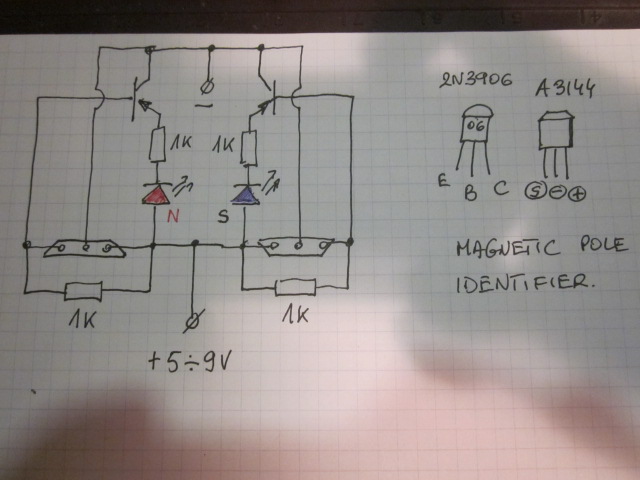 2N3906
A3144
06
E B C
S - +
-
1K 1K
N S
1K 1K
+5÷9V
MAGNETIC POLE
IDENTIFIER.